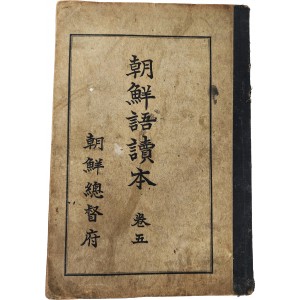 朝鮮語讀本 卷五
朝鮮總督府